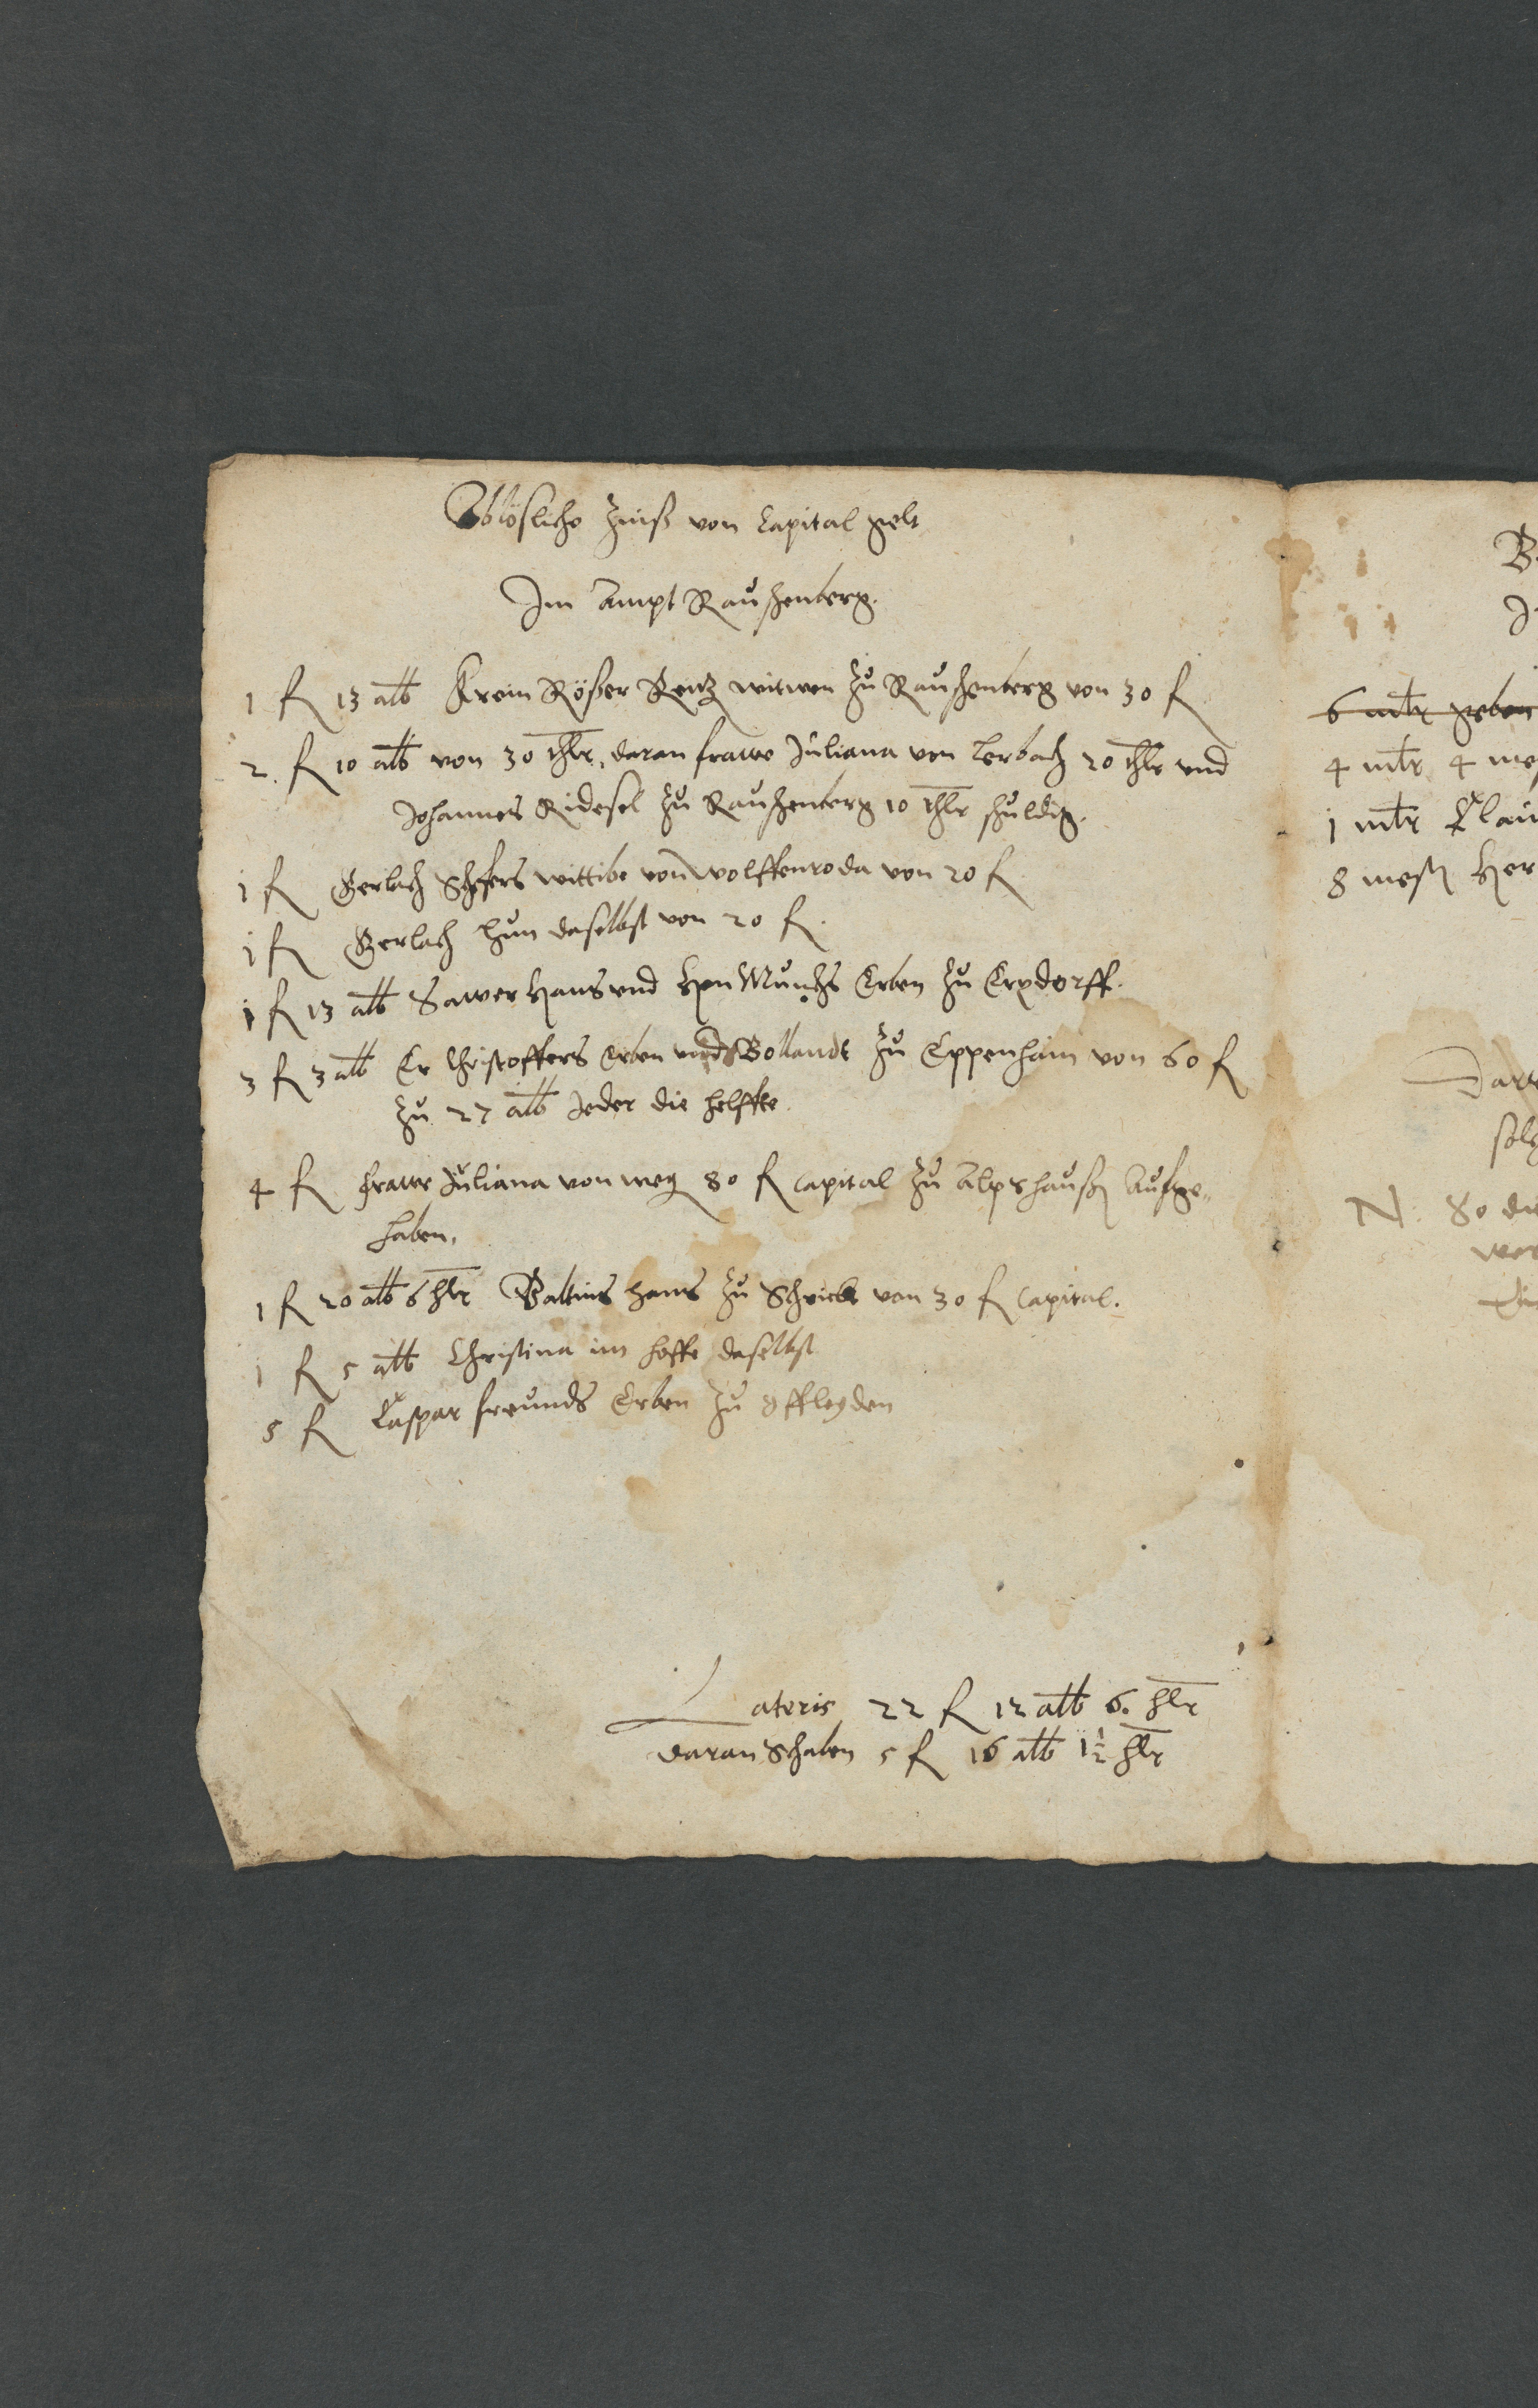 Ablösliche Zinß von Capital gelt
Im Ampt Rauschenberg.
1 fl 13 alb Krein Rößer Rentz witwen zu Rauschenberg von 30 fl
2. fl 10 alb von 30 thlr, daran frawe Juliana von Lerbach 20 thlr vnd
Johannes Ridesel zu Rauschenberg 10 thlr schuldig.
1 fl Gerlach Schefers wittibe von Wolffenroda von 20 fl
1 fl Gerlach Hun daselbst von 20 fl.
1 fl 13 alb Sawer Hans vnd Hen Munchs Erben zu Erxdorff.
3 fl 3 alb Er Christoffers Erben vnd Bollandt zu Eppenhain von 60 fl
zu 27 alb Jeder die helffte.
4 fl frawe Juliana von weg 80 fl Capital zu Alpshaußen Aufge„
haben.
1 fl 20 alb 6 hlr Baltins Hans zu Schrickt von 30 fl Capital.
1 fl 5 alb Christina im Hoffe daselbst
5 fl Caspar freunds Erben zu Offleyden
Lateris 22 fl 12 alb 6. hlr
daran Schaben 5 fl 16 alb 1½ hlr
6 mltr geben
4 mltr 4 mes
1 mltr Clau
8 mesten Her
N. 80 die